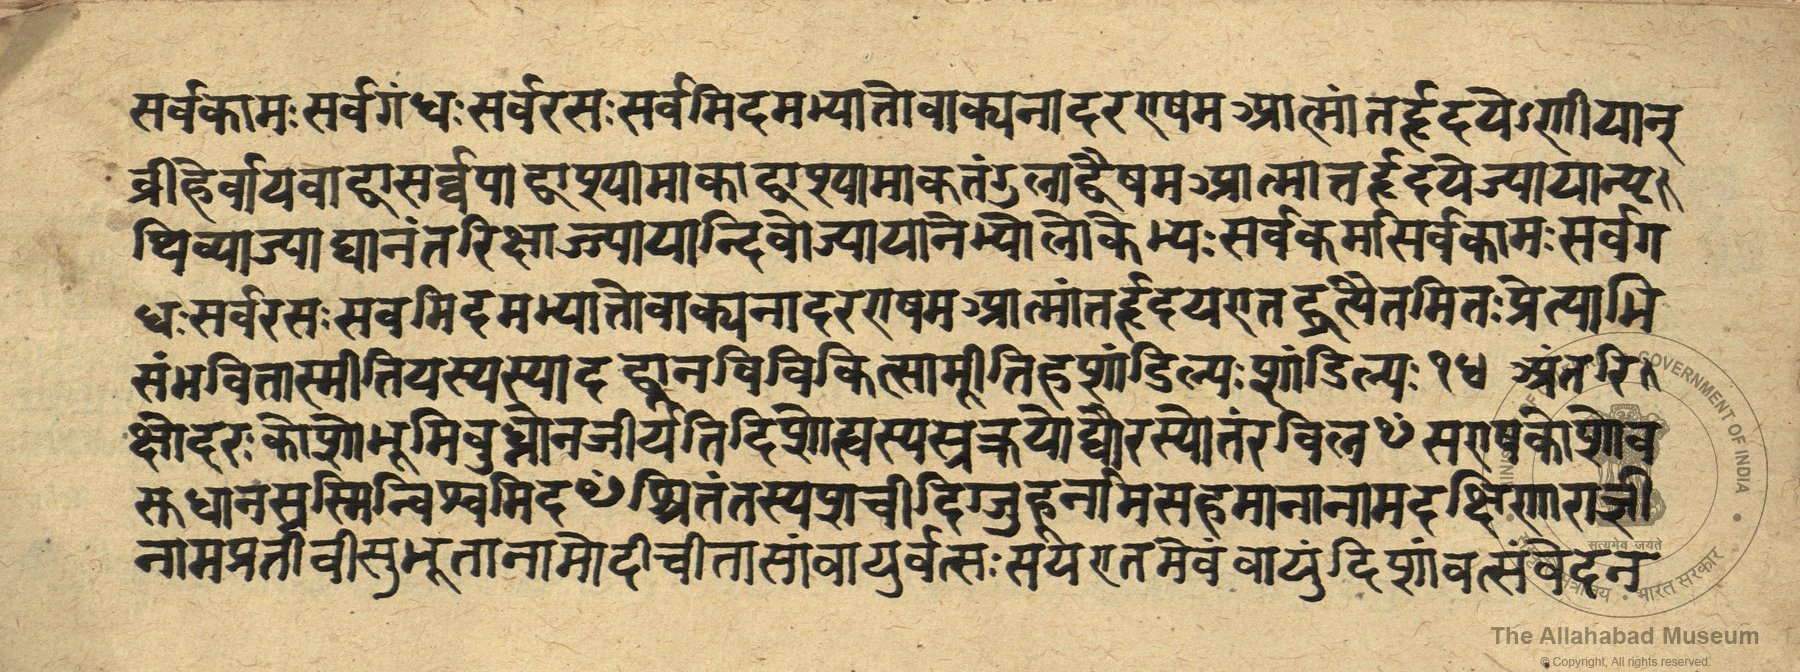 सर्वकामः सर्वगंधः सर्वरसः सर्वमिदमभ्यात्तोवाक्यनादरएषमआत्मांतर्हृदयेऽणीयान्
व्रीहेर्वायवाद्वासर्षपाद्वाश्यामाकाद्वाश्यामाकतंडुलाद्वैषमआत्मान्तर्हृदयेज्यायान्पृ
थिव्याज्यायानंतरिक्षाज्ज्यायान्दिवोज्यायानेभ्योलोकेभ्यः सर्वकर्मासर्वकामः सर्वग
धः सर्वरसः सवमिदमभ्यात्तोवाक्यनादरएषमआत्मांतर्हृदयएतद्ब्रह्मैतमितः प्रेत्याभि
संभवितास्मीतियस्यस्याद द्धानविचिकित्सास्तीतिहशांडिल्यः शांडिल्यः १४ अंतरि
क्षोदरः कोशोभूमिबुध्नोनजीर्यतिदिशोह्यस्यस्रक्तयोद्यौरस्योत्तंरबिलꣳ सएषकोशोव
सुधानस्तस्मिन्विश्वमिदꣳश्रितंतस्यप्राचीदिग्जुहूर्नामसहमानानामदक्षिणाराज्ञी
नामप्रतीचीसुभूतानामोदीचीतासांवायुर्वत्सः सयएतमेवंवायुंदिशांवत्संवेदन
MINISTRY OF CULTURE GOVERNMENT OF INDIA
सत्यमेव जयते
भारत सरकार
The Allahabad Museum
© Copyright, All rights reserved.